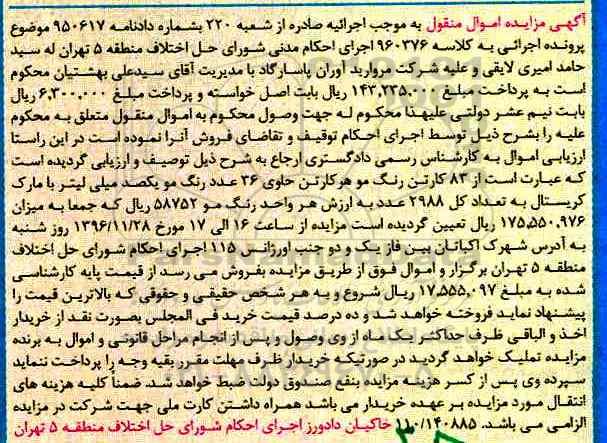 آگهی مزایده اموال منقول به موجب اجرائیه صادره از شعبه ۲۲۰ بشماره دادنامه ۹۵۰۶۱۷ موضوع
پرونده اجرائی به کلاسه ۹۶۰۳۷۶ اجرای احکام مدنی شورای حل اختلاف منطقه ۵ تهران له سید
حامد امیری لایقی و علیه شرکت مروارید آوران پاسارگاد با مدیریت آقای سیدعلی بهشتیان محکوم
است به پرداخت مبلغ ۱۴۳,۲۳۵,۰۰۰ ریال بابت اصل خواسته و پرداخت مبلغ ۶,۳۰۰,۰۰۰ ریال
بابت نیم عشر دولتی علیهذا محکوم له جهت وصول محکوم به اموال منقول متعلق به محکوم
علیه را بشرح ذیل توسط اجرای احکام توقیف و تقاضای فروش آنرا نموده است در این راستا
ارزیابی اموال به کارشناس رسمی دادگستری ارجاع به شرح ذیل توصیف و ارزیابی گردیده است
که عبارت است از ۸۳ کارتن رنگ مو هرکارتن حاوی ۳۶ عدد رنگ مو یکصد میلی لیتر با مارک
کریستال به تعداد کل ۲۹۸۸ عدد به ارزش هر واحد رنگ مو ۵۸۷۵۲ ریال که جمعا به میزان
۱۷۵,۵۵۰,۹۷۶ ریال تعیین گردیده است مزایده از ساعت ۱۶ الی ۱۷ مورخ ۱۳۹۶/۱۱/۲۸ روز شنبه
به آدرس شهرک اکباتان بین فاز یک و دو جنب اورژانس ۱۱۵ اجرای احکام شورای حل اختلاف
منطقه ۵ تهران برگزار و اموال فوق از طریق مزایده بفروش می رسد از قیمت پایه کارشناسی
شده به مبلغ ۱۷,۵۵۵,۰۹۷ ریال شروع و به هر شخص حقیقی و حقوقی که بالاترین قیمت را
پیشنهاد نماید فروخته خواهد شد و ده درصد قیمت خرید فی المجلس بصورت نقد از خریدار
اخذ و الباقی ظرف حداکثر یک ماه از وی وصول و پس از انجام مراحل قانونی و اموال به برنده
مزایده تملیک خواهد گردید در صورتیکه خریدار ظرف مهلت مقرر بقیه وجه را پرداخت ننماید
سپرده وی پس از کسر هزینه مزایده بنفع صندوق دولت ضبط خواهد شد. ضمناً کلیه هزینه های
انتقال مورد مزایده بر عهده خریدار می باشد همراه داشتن کارت ملی جهت شرکت در مزایده
الزامی می باشد. ۱۱۰/۱۴۰۸۸۵ خاکیان دادورز اجرای احکام شورای حل اختلاف منطقه ۵ تهران